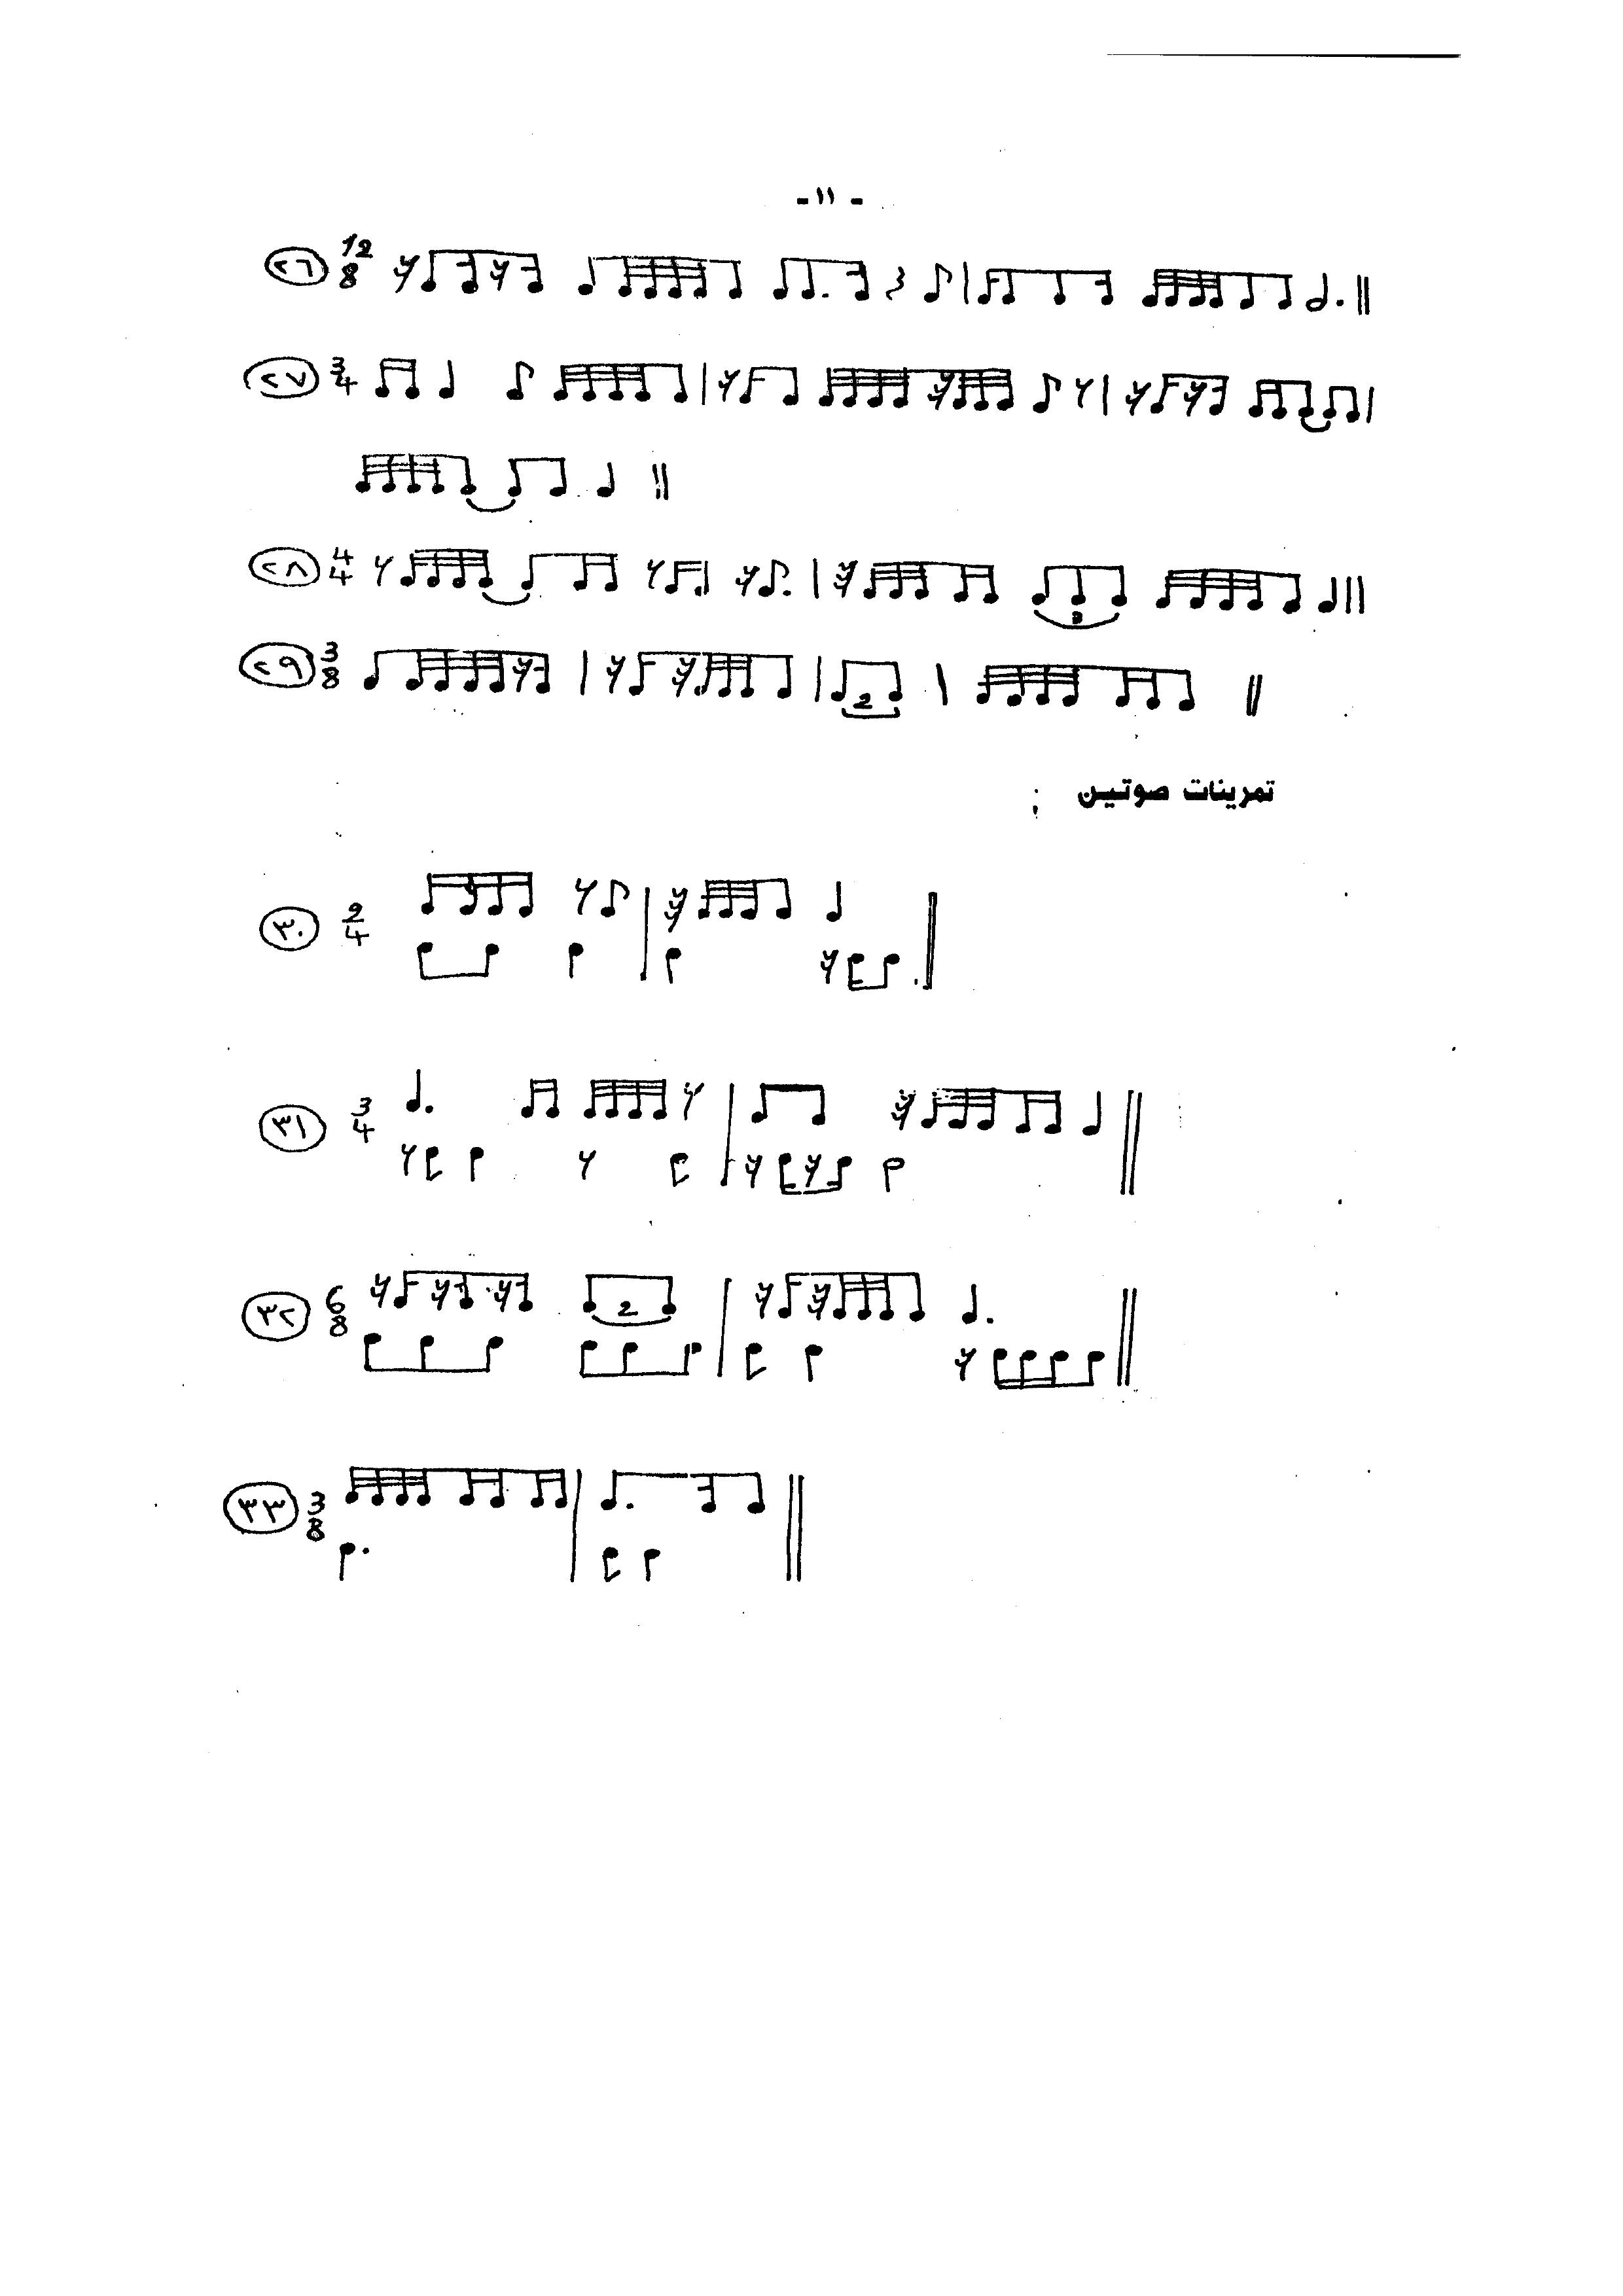 - ١١ -
٢٦ 12 8
٢٧ 3 4
٢٨ 4 4
3
٢٩ 3 8
2
تمرينات صوتين :
٣٠ 2 4
٣١ 3 4
٣٢ 6 8
2
٣٣ 3 8